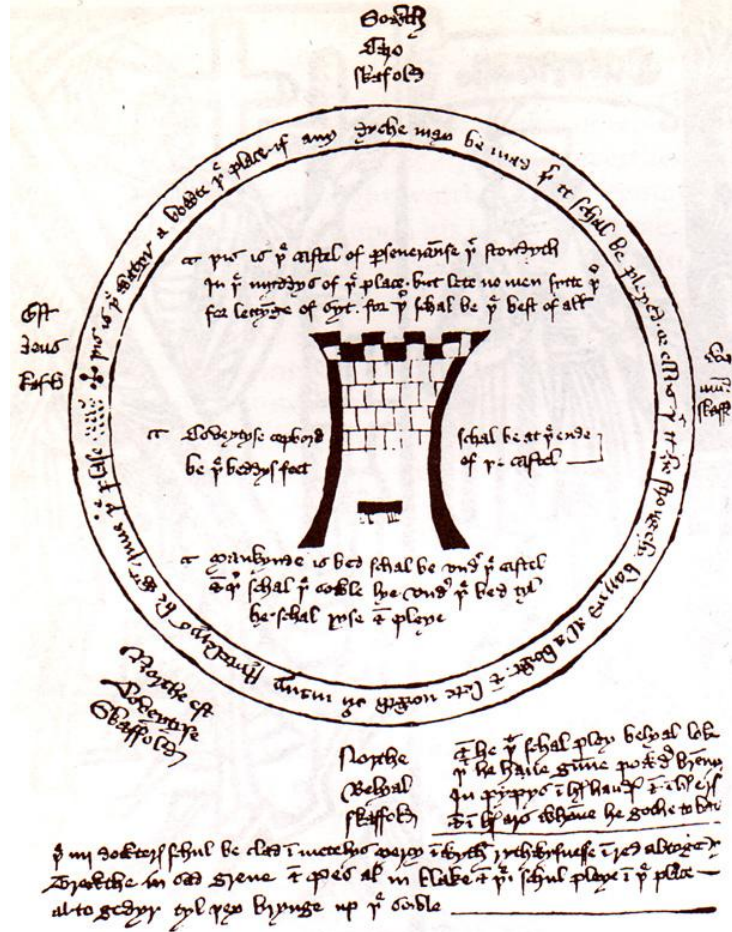 Sowth
Caro
skafold
Est
deus
skafold
þis is þe watyr a bowte þe place if any dyche may be mad þer it schal be pleyed or ellys þt it be strongely barryd al a bowt & lete nowth ovyr many stytelerys be wtinne þe plase
þis is þe castel of perseueraunse þt stondyth
In þe myddys of þe place but lete no men sytte þer
for lettynge of syt. for þer schal be þe best of all
Coveytyse copbord
be þe beddys feet
schal be at þe ende
of þe castel
Mankynde is bed schal be vndyr þe castel
& þer schal þe sowle lye vndyr þe bed tyl
he schal ryse & pleye
Northe est
Coveytyse
Skaffold
Northe
Belyal
skaffold
& he þt schal pley belyal loke
þt he haue gunne powdyr brenny
In pypys in his handys & in his erys
& in his ars whanne he gothe to
þe iiij dowterys schul be clad in mentelys mercy in wyth rythwysnesse in red altogedyr
Trewthe in sad grene & pes al in blake & þei schul pleye in þe place
al to gedyr tyl þey brynge up þe sowle